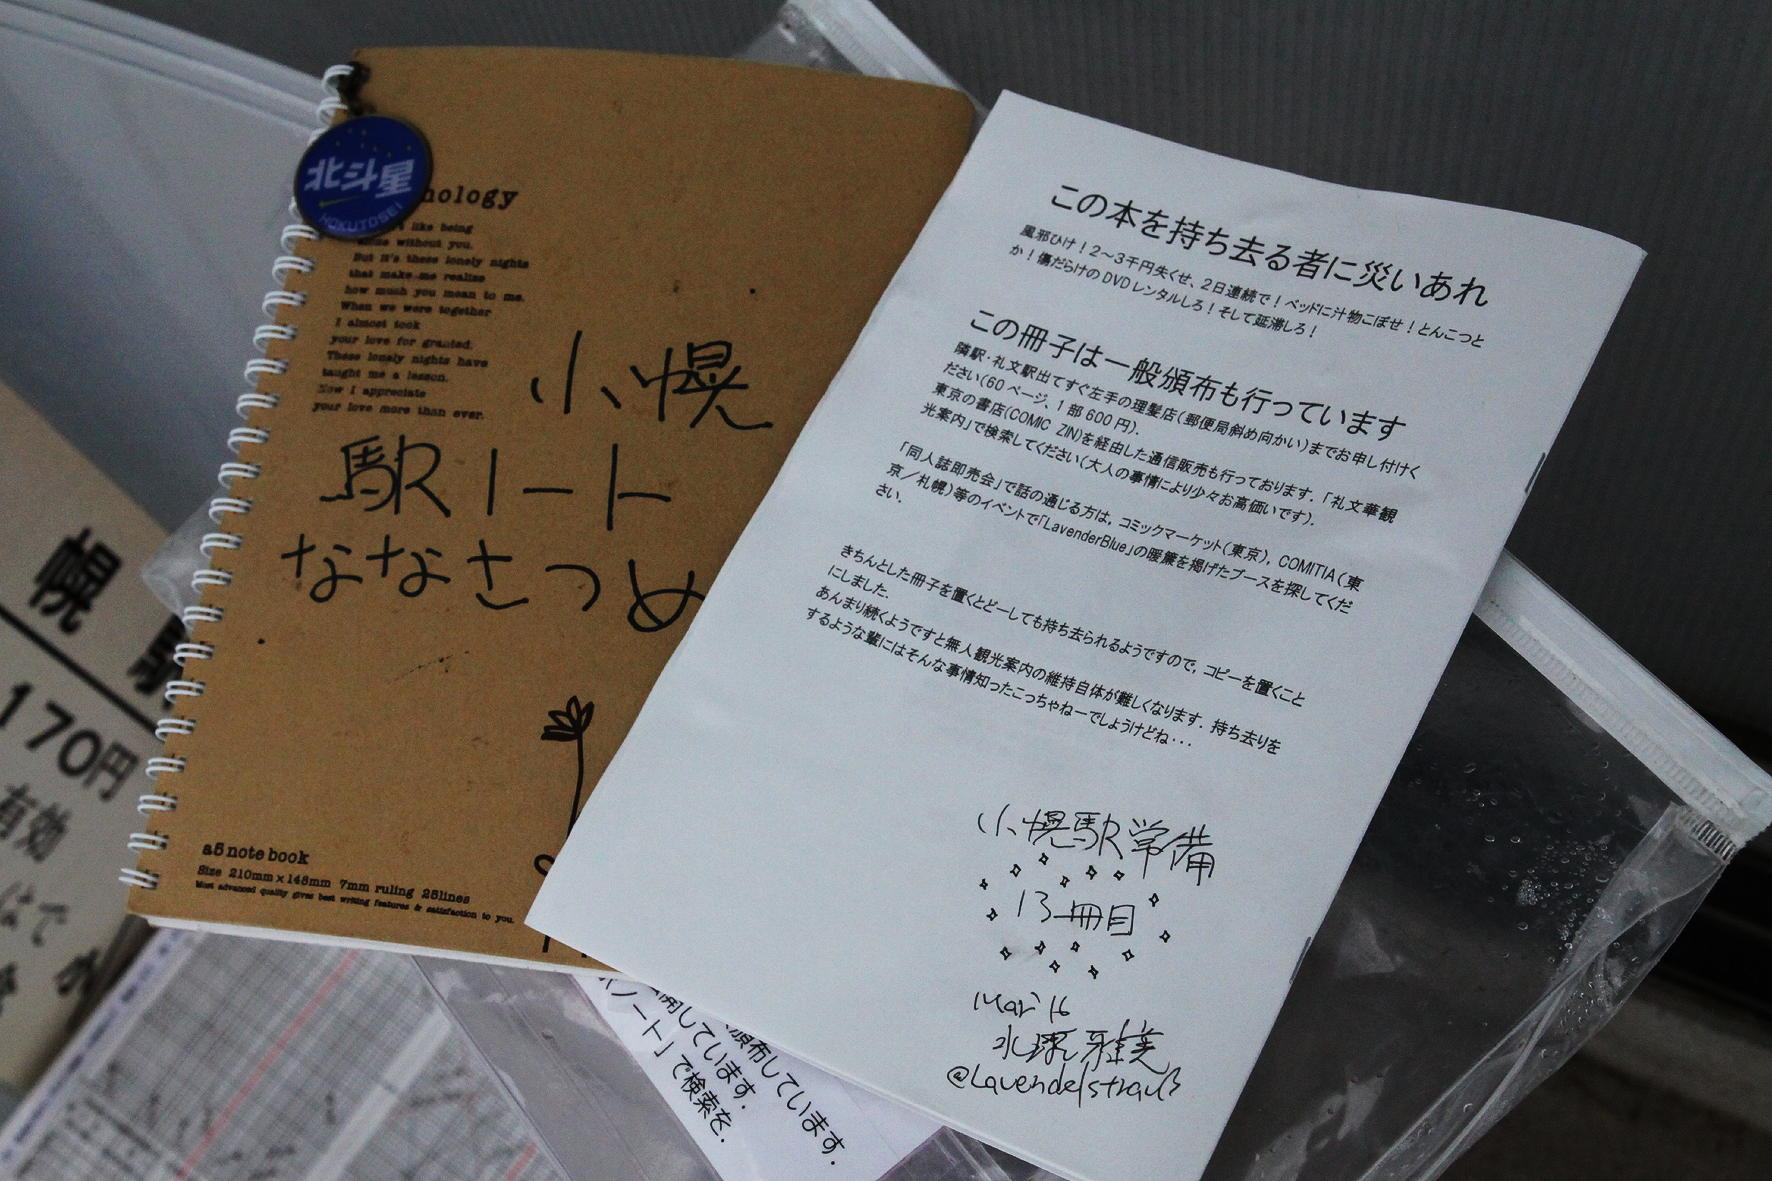 北斗星
HOKUTOSEI
nology
like being
without you.
But it's these lonely nights
that make me realize
how much you mean to me.
When we were together
I almost took
your love for granted.
These lonely nights have
taught me a lesson.
Now I appreciate
your love more than ever.
小幌
駅ノート
ななさつめ
a5 note book
Size 210mm×148mm 7mm ruling 25lines
Most advanced quality gives best writing features & satisfaction to you.
この本を持ち去る者に災いあれ
風邪ひけ！2～3千円失くせ、2日連続で！ベッドに汁物こぼせ！とんこつと
か！傷だらけのDVDレンタルしろ！そして延滞しろ！
この冊子は一般頒布も行っています
隣駅・礼文駅出てすぐ左手の理髪店(郵便局斜め向かい)までお申し付けく
ださい(60ページ、1部600円).
東京の書店(COMIC ZIN)を経由した通信販売も行っております.「礼文華観
光案内」で検索してください(大人の事情により少々お高価いです).
「同人誌即売会」で話の通じる方は，コミックマーケット(東京)，COMITIA(東
京／札幌)等のイベントで「LavenderBlue」の暖簾を掲げたブースを探してくだ
さい.
きちんとした冊子を置くとどーしても持ち去られるようですので，コピーを置くこと
にしました.
あんまり続くようですと無人観光案内の維持自体が難しくなります. 持ち去りを
するような輩にはそんな事情知ったこっちゃねーでしょうけどね・・・
小幌駅常備
13冊目
Mar 16
雅美
@Lavendelstrauß
幌 駅
170円
有効
はで
頒布しています.
開しています.
ノート」で検索を.